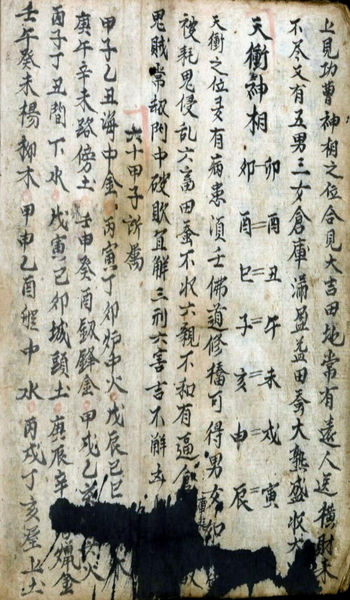 上見功曹神相之位合見大吉田地常有遠人送橫財来
不尽又有五男三女倉庫滿盈益田蚕大熟盛收
天衝神相
卯 酉 丑 午 未 戌 寅
卯 酉 巳 子 亥 申 辰
天衝之位多有病患須壬佛道修橋可得男女和
被耗鬼侵乱六畜田蚕不收六親不和有逼
鬼賊常刼門中破敗宜解三刑六害言不解
六十甲子所屬
甲子乙丑海中金 丙寅丁卯炉中火 戊辰己巳
庚午辛未路傍土 壬申癸酉釰鋒金 甲戌乙 火
丙子丁丑間下水 戊寅己卯城頭土 庚辰辛 蝋金
壬午癸未楊柳木 甲申乙酉 中水 丙戌丁亥屋上土